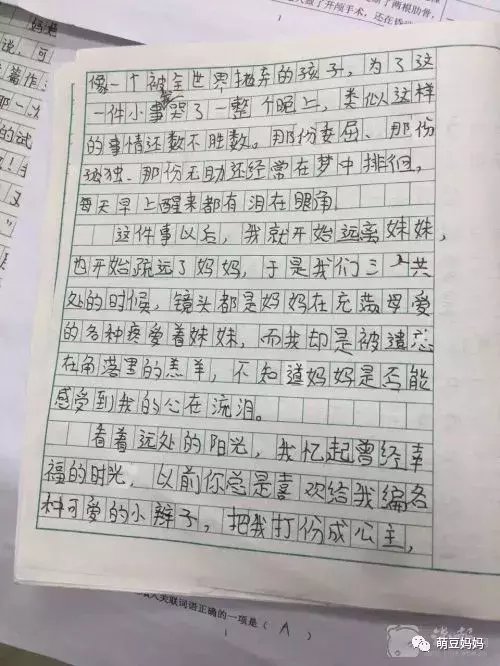 了两根肋骨，
了开颅手术，还在
说，可
篇作
那一次
的试
像一个被全世界抛弃的孩子，为了这
一件小事哭了一整个晚上，类似这样
的事情还数不胜数。那份委屈、那份
孤独、那份无助还经常在梦中排徊，
每天早上醒来都有泪在眼角
这件事以后，我就开始远离妹妹，
也开始疏远了妈妈，于是我们三人共
处的时候，镜头都是妈妈在充满母爱
的各种疼爱着妹妹，而我却是被遗忘
在角落里的羔羊，不知道妈妈是否能
感受到我的心在流泪。
看着远处的阳光，我忆起曾经幸
福的时光，以前你总是喜欢给我编各
种可爱的小辫子，把我打份成公主，
入关联词语正确的一项是（ A ）
萌豆妈妈